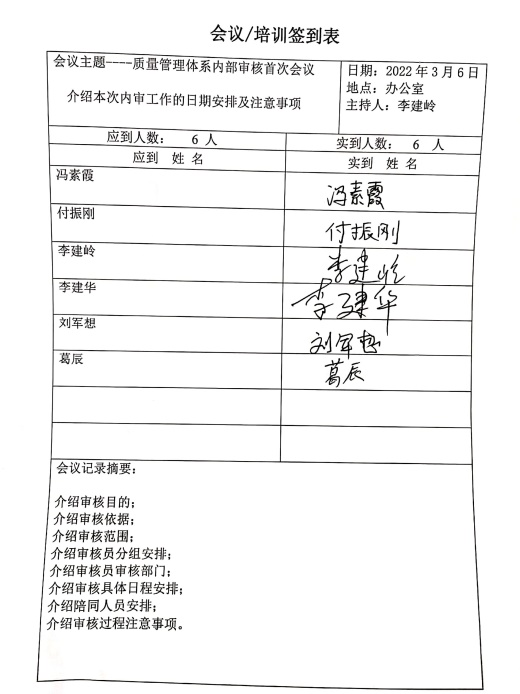 会议/培训签到表
会议主题----质量管理体系内部审核首次会议
介绍本次内审工作的日期安排及注意事项
日期：2022年3月6日
地点：办公室
主持人：李建岭
应到人数： 6 人
实到人数： 6 人
应到 姓名
实到 姓名
冯素霞
冯素霞
付振刚
付振刚
李建岭
李建岭
李建华
李建华
刘军想
刘军想
葛辰
葛辰
会议记录摘要：
介绍审核目的；
介绍审核依据；
介绍审核范围；
介绍审核员分组安排；
介绍审核员审核部门；
介绍审核具体日程安排；
介绍陪同人员安排；
介绍审核过程注意事项。